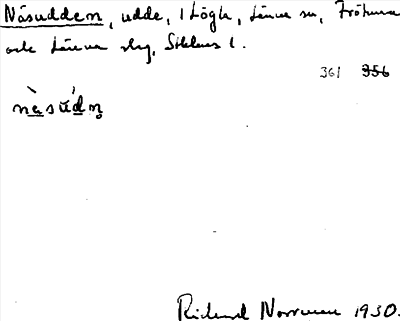 Näsudden, udde, i Lögla, Länna sn, Frötuna
och Länna slg, Sthlms l.
361 356
nä̀sŭ́dn̥
Richard Norrman 1930.